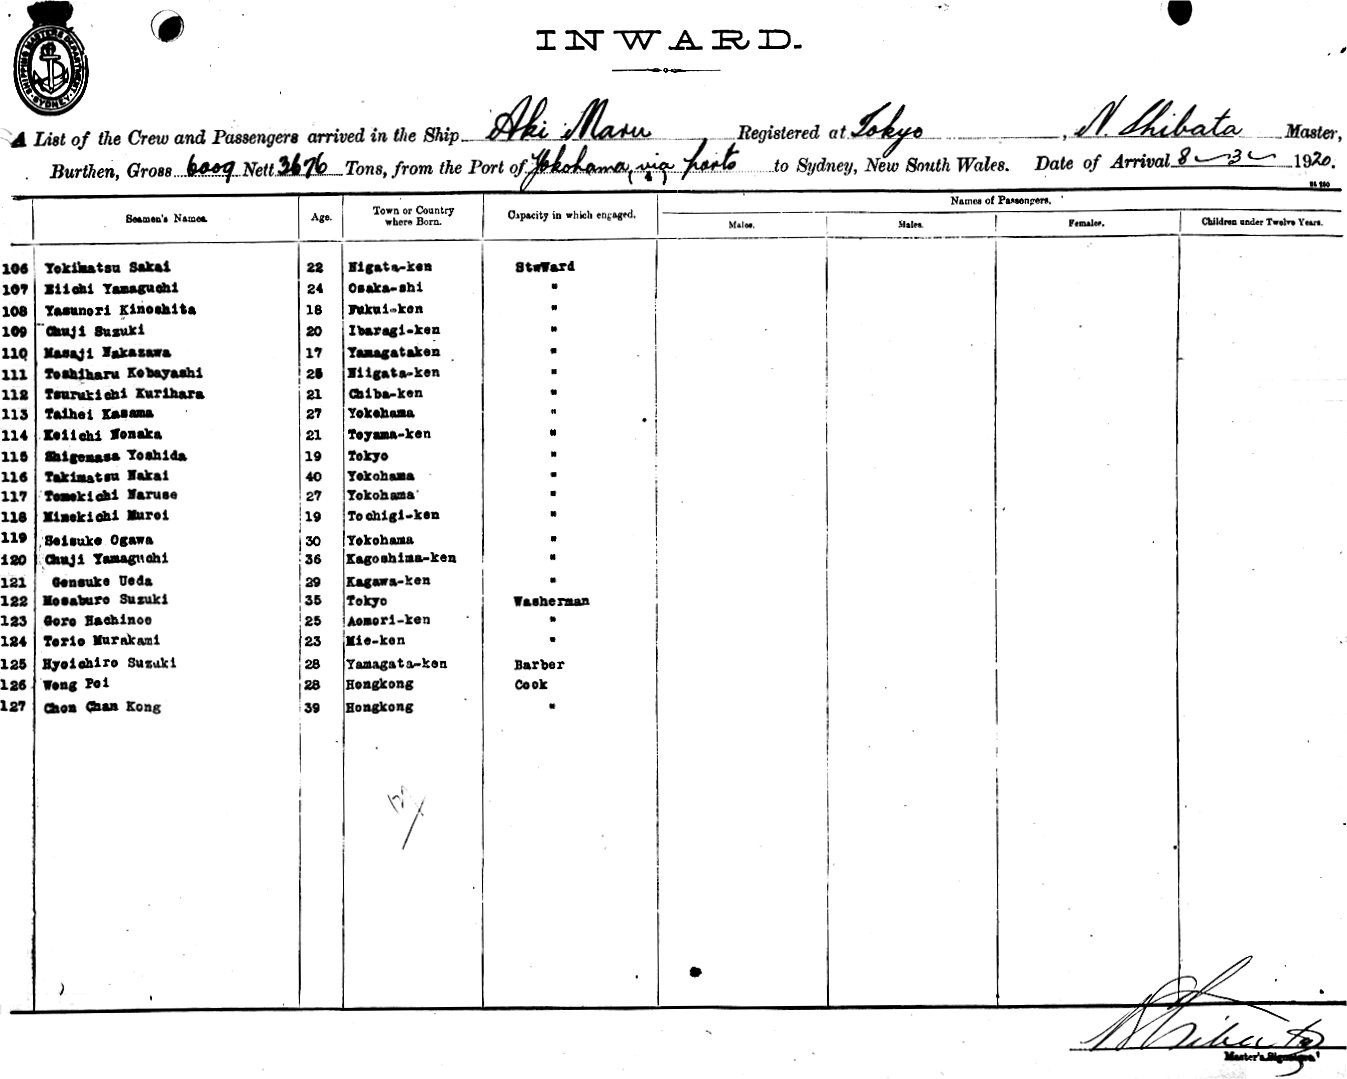 SHIPPING MASTERS DEPARTMENT
SYDNEY
INWARD.
A List of the Crew and Passengers arrived in the Ship Aki Maru, Registered at Tokyo, N Shibata Master,
Burthen, Gross 6009 Nett 3676 Tons, from the Port of Yokohama (via) ports to Sydney, New South Wales. Date of Arrival 8-3-1920.
Names of Passengers.
Seamen's Names. Age. Town or Country where Born. Capacity in which engaged. Males. Males. Females. Children under Twelve Years.
106 Yokimatsu Sakai 22 Nigata-ken StwWard
107 Eiichi Yamaguchi 24 Osaka-shi "
108 Yasunori Kinoshita 18 Fukui-ken "
109 Chuji Suzuki 20 Ibaragi-ken "
110 Masaji Nakazawa 17 Yamagataken "
111 Toshiharu Kobayashi Niigata-ken "
112 Tsurukichi Kurihara 21 Chiba-ken "
113 Taihei Kasama 27 Yokohama "
114 Keiichi Nonaka 21 Toyama-ken "
115 Shigemasa Yoshida 19 Tokyo "
116 Takimatsu Nakai 40 Yokohama "
117 Tomekichi Naruse 27 Yokohama "
118 Minekichi Muroi 19 Tochigi-ken "
119 Seisuke Ogawa 30 Yokohama "
120 Chuji Yamaguchi 36 Kagoshima-ken "
121 Gensuke Ueda 29 Kagawa-ken "
122 Mosaburo Suzuki 35 Tokyo Washerman
123 Goro Hachinoe 25 Aomori-ken "
124 Terio Murakami 23 Mie-ken "
125 Hyoichiro Suzuki 28 Yamagata-ken Barber
126 Wong Poi 28 Hongkong Cook
127 Chon Chan Kong 39 Hongkong "
N Shibata
Master's Signature